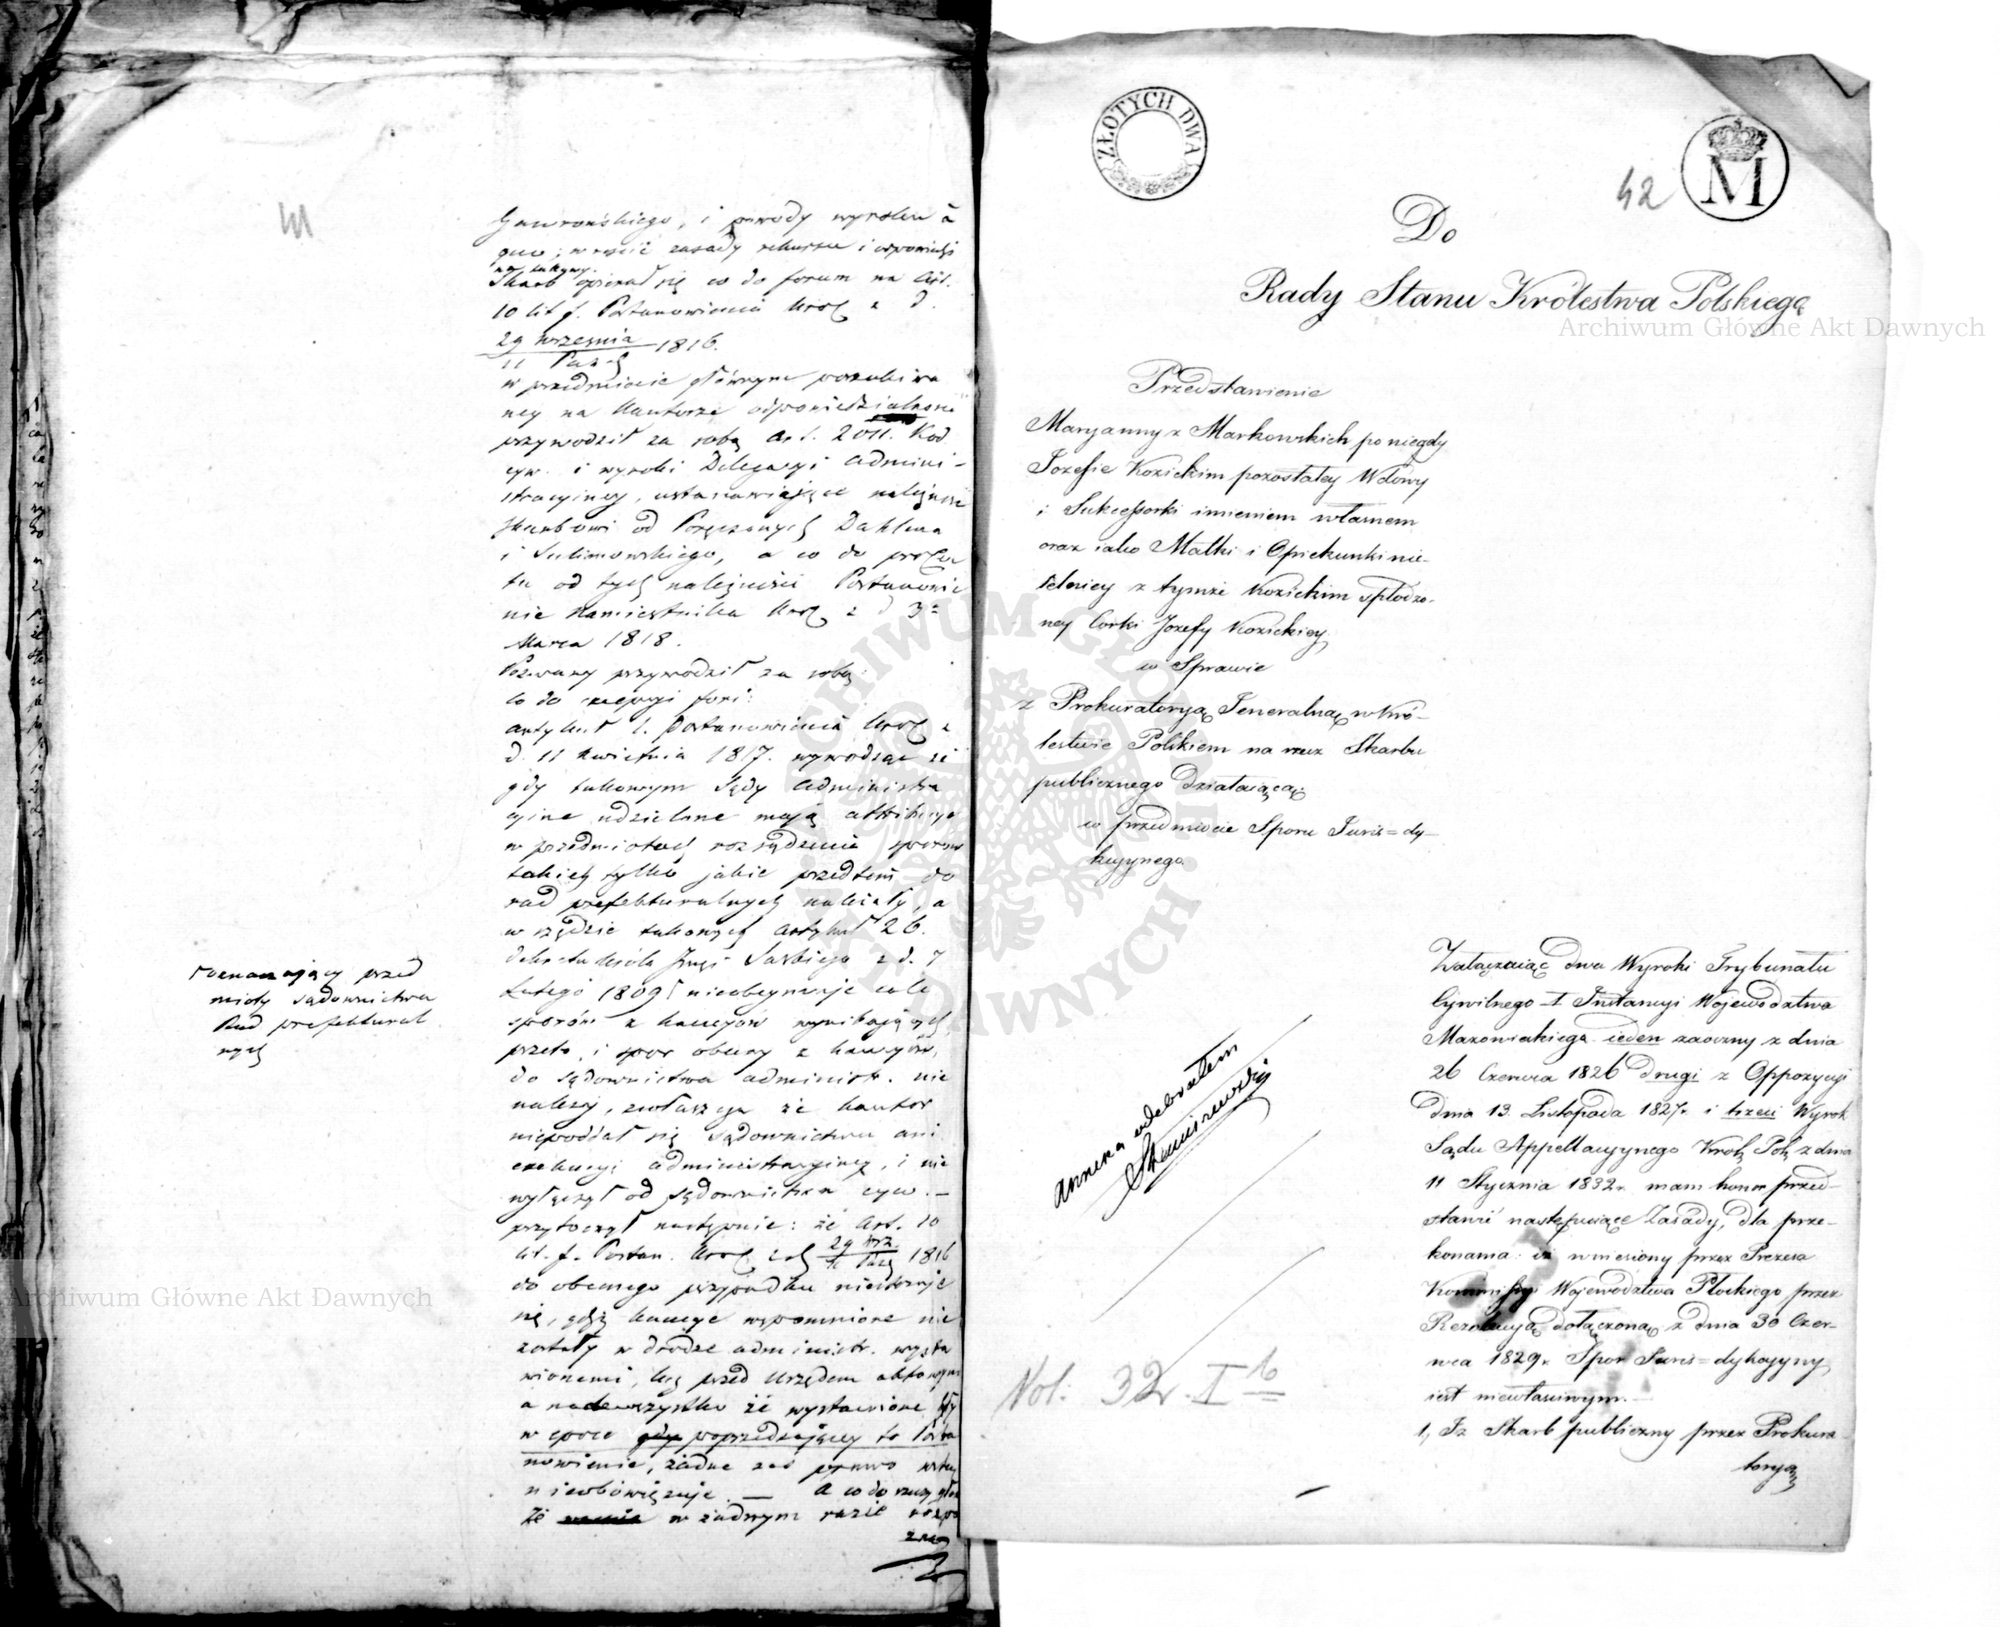 Gawrońskiego, i powody wyroku à
quo; wreście zasady rekursu i odpowiedzi
na takowy.
Skarb opierał się co do forum na Art.
10 lit f. Postanowienia Król z d.
29 września
11 Paźd 1816.
w przedmiocie głównym poszukiwa
ney na Kautorze odpowiedzialności
przywodził za sobą Art. 2011. Kod
cyw. i wyroki Delegacyi Admini-
stracyiney, ustanawiające należność
Skarbowi od Poręczonych Dahlena
i Sulimowskiego, a co do procen
tu od tych należności Postanowie
nie Namiestnika Król z d 3º
Marca 1818.
Pozwany przywodził za sobą:
Co do excepcyi fori:
artykuł 1. Postanowienia Król z
d. 11 Kwietnia 1817. wywodząc że
gdy takowym Sądy Administra
cyine udzielone mają attrybucye
w przedmiotach rozsądzenia sporów
takich tylko jakie przedtem do
rad prefekturalnych należały, a
w rzędzie takowych Artykuł 26.
dekretu Króla Xcia Saskiego z d. 7
Lutego 1809 nieobeymuje wcale
oznaczający przed
mioty sądownictwa
Rad prefektural
nych
sporów z kaucyów wynikających
przeto i spor obecny z kaucyów,
do sądownictwa administr. nie
należy, zwłaszcza że kautor
niepoddał się sądownictwu ani
exekucyi administracyiney, i nie
wyłączył od sądownictwa cyw. —
przytoczył następnie: że Art. 10
lit. f. Postan. Król z d 29 Wrz.
11 Paźd 1816
do obecnego przypadku niestosuje
się, gdyż kaucye wspomnione nie
zostały w drodze administr. wysta
wionemi, lecz przed Urzędem aktowym
a nadewszystko że wystawione były
w epoce poprzedzającey to Posta
nowienie, żadne zaś prawo wstecz
nieobowiązuje. — A co do rzeczy głów
że w żadnym razie
42
ZŁOTYCH DWA
M
Do
Rady Stanu Królestwa Polskiego
Przedstawienie
Maryanny z Markowskich po niegdy
Jozefie Kozickim pozostałey Wdowy
i Sukcessorki imieniem własnem
oraz iako Matki i Opiekunki nie-
letniey z tymże Kozickim spłodzo-
ney Corki Jozefy Kozickiey,
w Sprawie
z Prokuratoryą Jeneralną w Kró-
lestwie Polskiem na rzecz Skarbu
publicznego działaiącą
w przedmiocie Sporu Juris=dy-
kcyynego.
Załączaiąc dwa Wyroki Trybunału
Cywilnego I Instancyi Województwa
Mazowieckiego ieden zaoczny z dnia
26 Czerwca 1826 drugi z Oppozycyi
dnia 13. Listopada 1827r. i trzeci Wyrok
Sądu Appellacyynego Król. Pol. z dnia
11 Stycznia 1832r. mam honor przed-
stawić następuiące Zasady, dla prze-
konania: iż wniesiony przez Prezesa
Kommissyi Województwa Płockiego przez
Rezolucyą dołączoną z dnia 30 Czer-
wca 1829r. Spor Juris=dykcyyny,
iest niewłaściwym.
1, Iż Skarb publiczny przez Prokura
toryą
Annexa odebrałem
Vol. 32. I b
Archiwum Główne Akt Dawnych
Archiwum Główne Akt Dawnych
ARCHIWUM GŁÓWNE AKT DAWNYCH